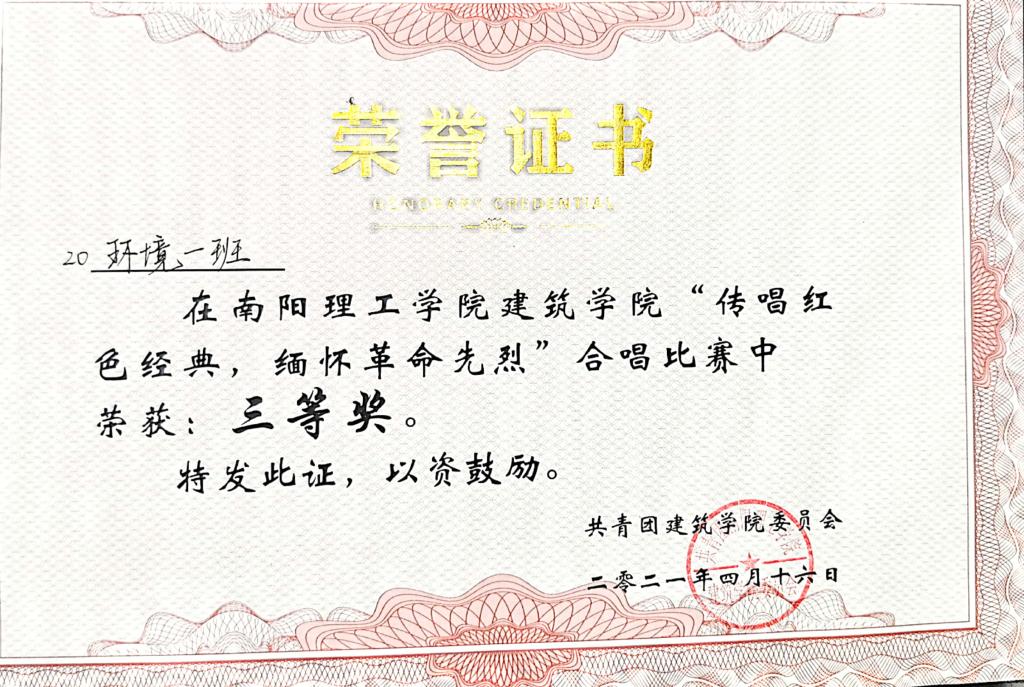 荣誉证书
HONORARY CREDENTIAL
20 环境一班
在南阳理工学院建筑学院“传唱红
色经典，缅怀革命先烈”合唱比赛中
荣获：三等奖。
特发此证，以资鼓励。
共青团建筑学院委员会
二零二一年四月十六日